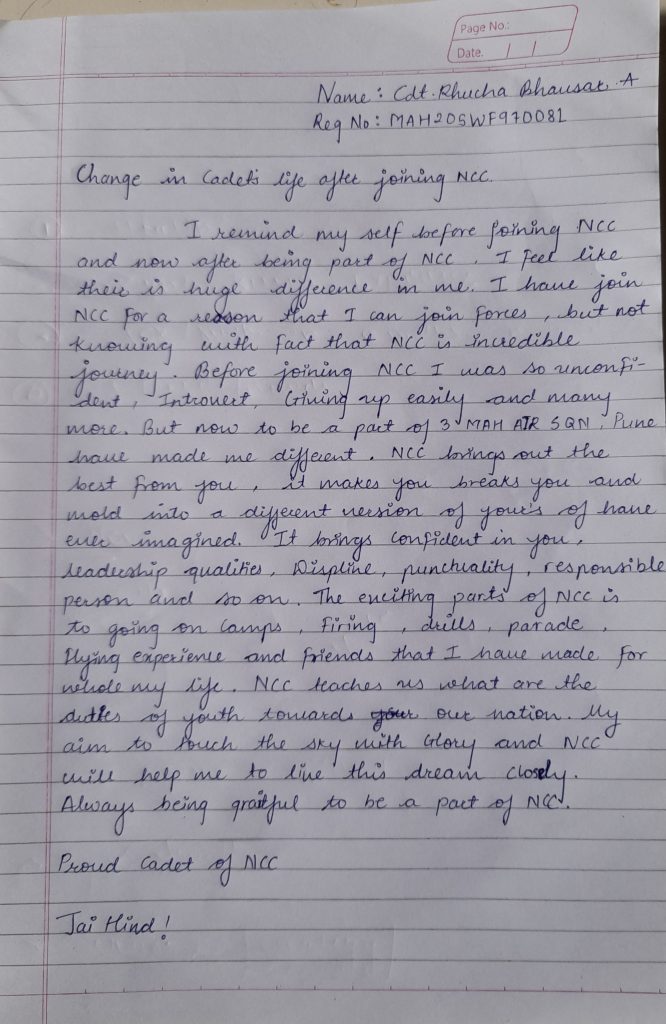 Page No.:
Date. / /
Name : Cdt. Rhucha Bhausar. A
Reg No : MAH20SWF970081
Change in Cadet's life after joining NCC.
I remind my self before joining NCC
and now after being part of NCC. I feel like
their is huge difference in me. I have join
NCC for a reason that I can join forces, but not
knowing with fact that NCC is incredible
journey. Before joining NCC I was so unconfi-
dent, Introvert, Giving up easily and many
more. But now to be a part of 3 MAH AIR SQN, Pune
have made me different. NCC brings out the
best from you, it makes you breaks you and
mold into a different version of your's of have
ever imagined. It brings confident in you,
leadership qualities, Displine, punctuality, responsible
person and so on. The exciting parts of NCC is
to going on camps, firing, drills, parade,
flying experience and friends that I have made for
whole my life. NCC teaches us what are the
duties of youth towards our nation. My
aim to touch the sky with Glory and NCC
will help me to live this dream closely.
Always being gratful to be a part of NCC.
Proud Cadet of NCC
Jai Hind!